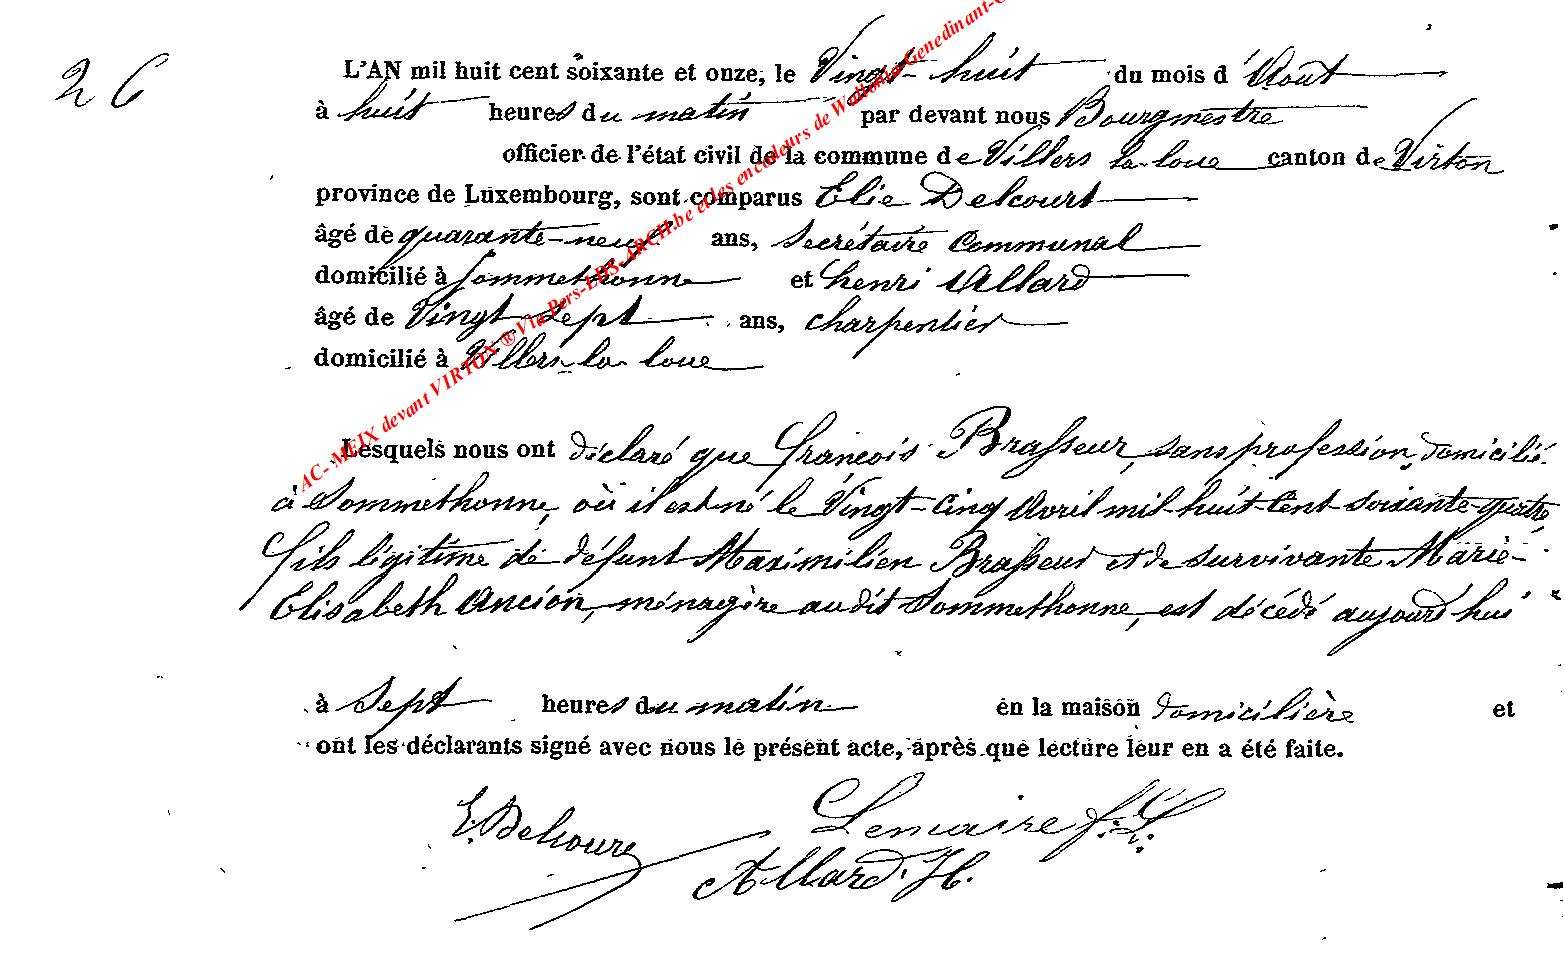 26
L'AN mil huit cent soixante et onze, le Vingt-huit du mois d'Aout
à huit heures du matin par devant nous Bourgmestre
officier de l'état civil de la commune de Villers la-loue canton de Virton
province de Luxembourg, sont comparus Elie Delcourt
âgé de quarante-neuf ans, secrétaire Communal
domicilié à Sommethonne et henri Allard
âgé de Vingt Sept ans, charpentier
domicilié à Villers-la-loue
Lesquels nous ont déclaré que François Brasseur, sans profession, domicilié
à Sommethonne, où il est né le Vingt-cinq Avril mil-huit-Cent-soixante-quatre,
fils légitime de défunt Maximilien Brasseur et de survivante Marie-
Elisabeth Ancion, ménagère audit Sommethonne, est décédé aujourd'hui
à Sept heures du matin en la maison domicilière et
ont les déclarants signé avec nous le présent acte, après que lecture leur en a été faite.
E. Delcourt
Lemaire f.
Allard. H.
AC- MEIX devant VIRTON ® Via Pers-EBS-ARCH.be et les encodeurs de Wallonia-Genedinant-